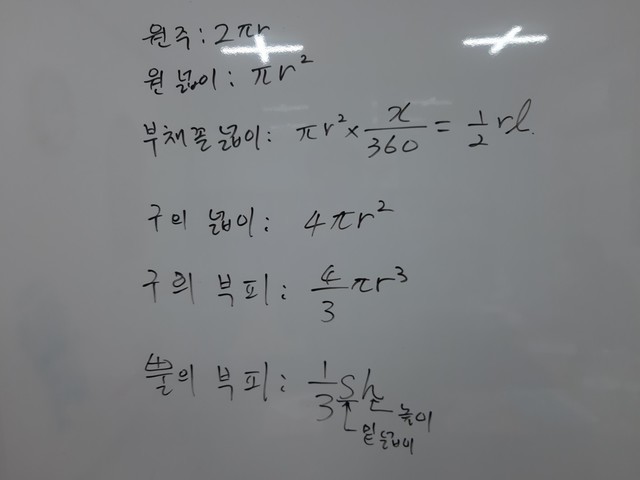 원주: 2πr
원 넓이: πr²
부채꼴 넓이: πr² × x/360 = 1/2 rl.
구의 넓이: 4πr²
구의 부피: 4/3 πr³
뿔의 부피: 1/3 Sh
높이
밑넓이